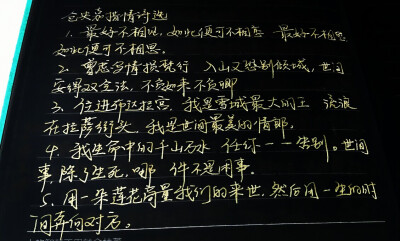 仓央嘉措情诗选
1. 最好不相见, 如此便可不相恋 最好不相思
如此便可不相思.
2. 曾虑多情损梵行 入山又恐别倾城, 世间
安得双全法, 不负如来不负卿
3. 住进布达拉宫, 我是雪域最大的王 流浪
在拉萨街头, 我是世间最美的情郎,
4. 我生命中的千山万水 任你一一告别。世间
事, 除了生死, 哪 件不是闲事。
5. 用一朵莲花商量我们的来世, 然后用一生的时
间奔向对方。